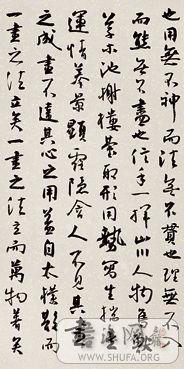 也用無不神而法無不貫也理無不入
而態無不盡也信手一揮山川人物鳥獸
草木池榭樓臺取形用勢寫生揣意
運情摹景顯露隱含人不見其畫
之成畫不違其心之用蓋自太樸散而
一畫之法立矣一畫之法立而萬物著矣
WWW.SHUFA.ORG